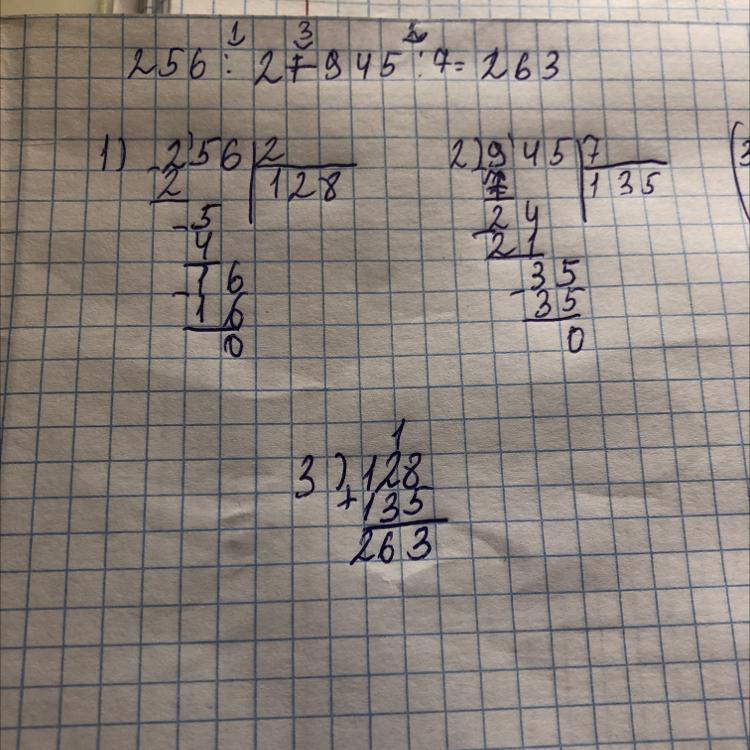 1 3 2
256 : 2 + 945 : 7 = 263
1) 256 2
- 2 128
- 5
4
- 16
16
0
2) 945 7
7 135
- 24
21
- 35
35
0
(3
1
3) 128
+ 135
263